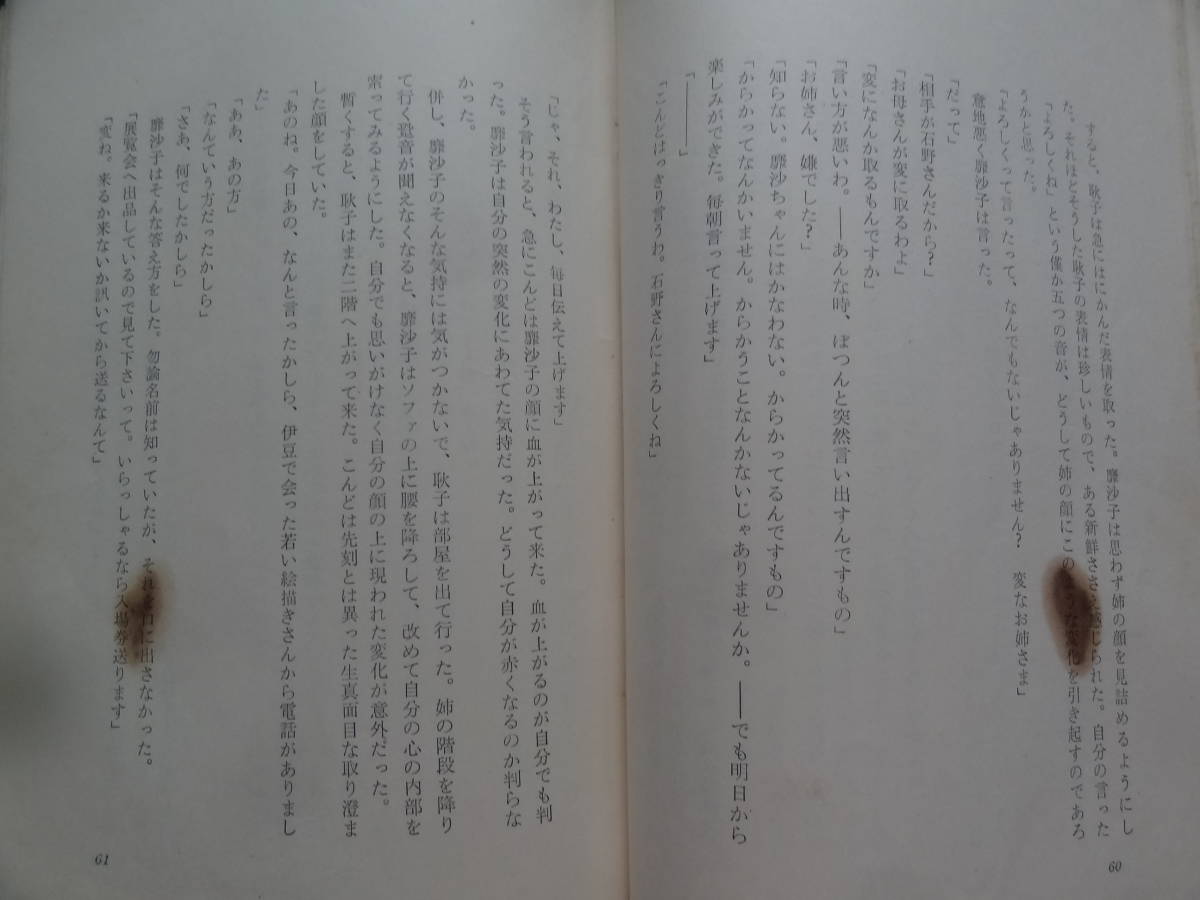 すると、耿子は急にはにかんだ表情を取った。靡沙子は思わず姉の顔を見詰めるようにし
た。それほどそうした耿子の表情は珍しいもので、ある新鮮ささえ感じられた。自分の言った
「よろしくね」という僅か五つの音が、どうして姉の顔にこのような変化を引き起すのであろ
うかと思った。
「よろしくって言ったって、なんでもないじゃありません？　変なお姉さま」
意地悪く靡沙子は言った。
「だって」
「相手が石野さんだから？」
「お母さんが変に取るわよ」
「変になんか取るもんですか」
「言い方が悪いわ。――あんな時、ぽつんと突然言い出すんですもの」
「お姉さん、嫌でした？」
「知らない。靡沙ちゃんにはかなわない。からかってるんですもの」
「からかってなんかいません。からかうことなんかないじゃありませんか。――でも明日から
楽しみができた。毎朝言って上げます」
「――――」
「こんどはっきり言うわ。石野さんによろしくね」
60
「じゃ、それ、わたし、毎日伝えて上げます」
そう言われると、急にこんどは靡沙子の顔に血が上がって来た。血が上がるのが自分でも判
った。靡沙子は自分の突然の変化にあわてた気持だった。どうして自分が赤くなるのか判らな
かった。
併し、靡沙子のそんな気持には気がつかないで、耿子は部屋を出て行った。姉の階段を降り
て行く跫音が聞えなくなると、靡沙子はソファの上に腰を降ろして、改めて自分の心の内部を
索ってみるようにした。自分でも思いがけなく自分の顔の上に現われた変化が意外だった。
暫くすると、耿子はまた二階へ上がって来た。こんどは先刻とは異った生真面目な取り澄ま
した顔をしていた。
「あのね。今日あの、なんと言ったかしら、伊豆で会った若い絵描きさんから電話がありまし
た」
「ああ、あの方」
「なんていう方だったかしら」
「さあ、何でしたかしら」
靡沙子はそんな答え方をした。勿論名前は知っていたが、それを口に出さなかった。
「展覧会へ出品しているので見て下さいって。いらっしゃるなら入場券送ります」
「変ね。来るか来ないか訊いてから送るなんて」
61